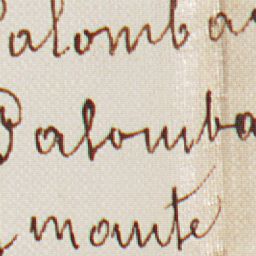 Palomba
Palomba
monte